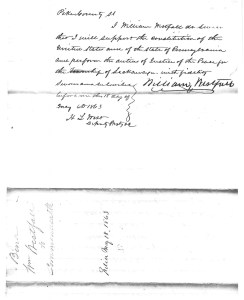 Pike County ss
I William Westfall do swear
that I will support the Constitution of the
United States and of the State of Pennsylvania
and perform the duties of Justice of the Peace for
the Township of Lackawaxen with fidelity
Sworn and subscribed William Westfall
before me this 18 day of
May AD 1863
H S Mott
Deputy
Bond
Wm Westfall
to
Commonwealth
Filed May 18, 1863